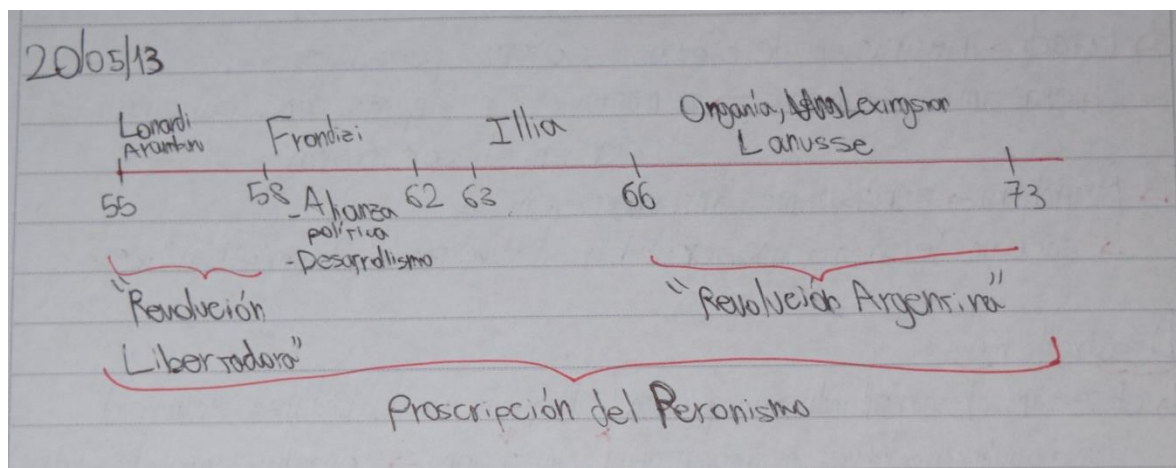 20/05/13
Lonardi
Aramburu
Frondizi
Illia
Onganía, Lexingston
Lanusse
55
58
62
63
66
73
- Alianza
política
- Desarrollismo
"Revolución
Libertadora"
"Revolución Argentina"
Proscripción del Peronismo